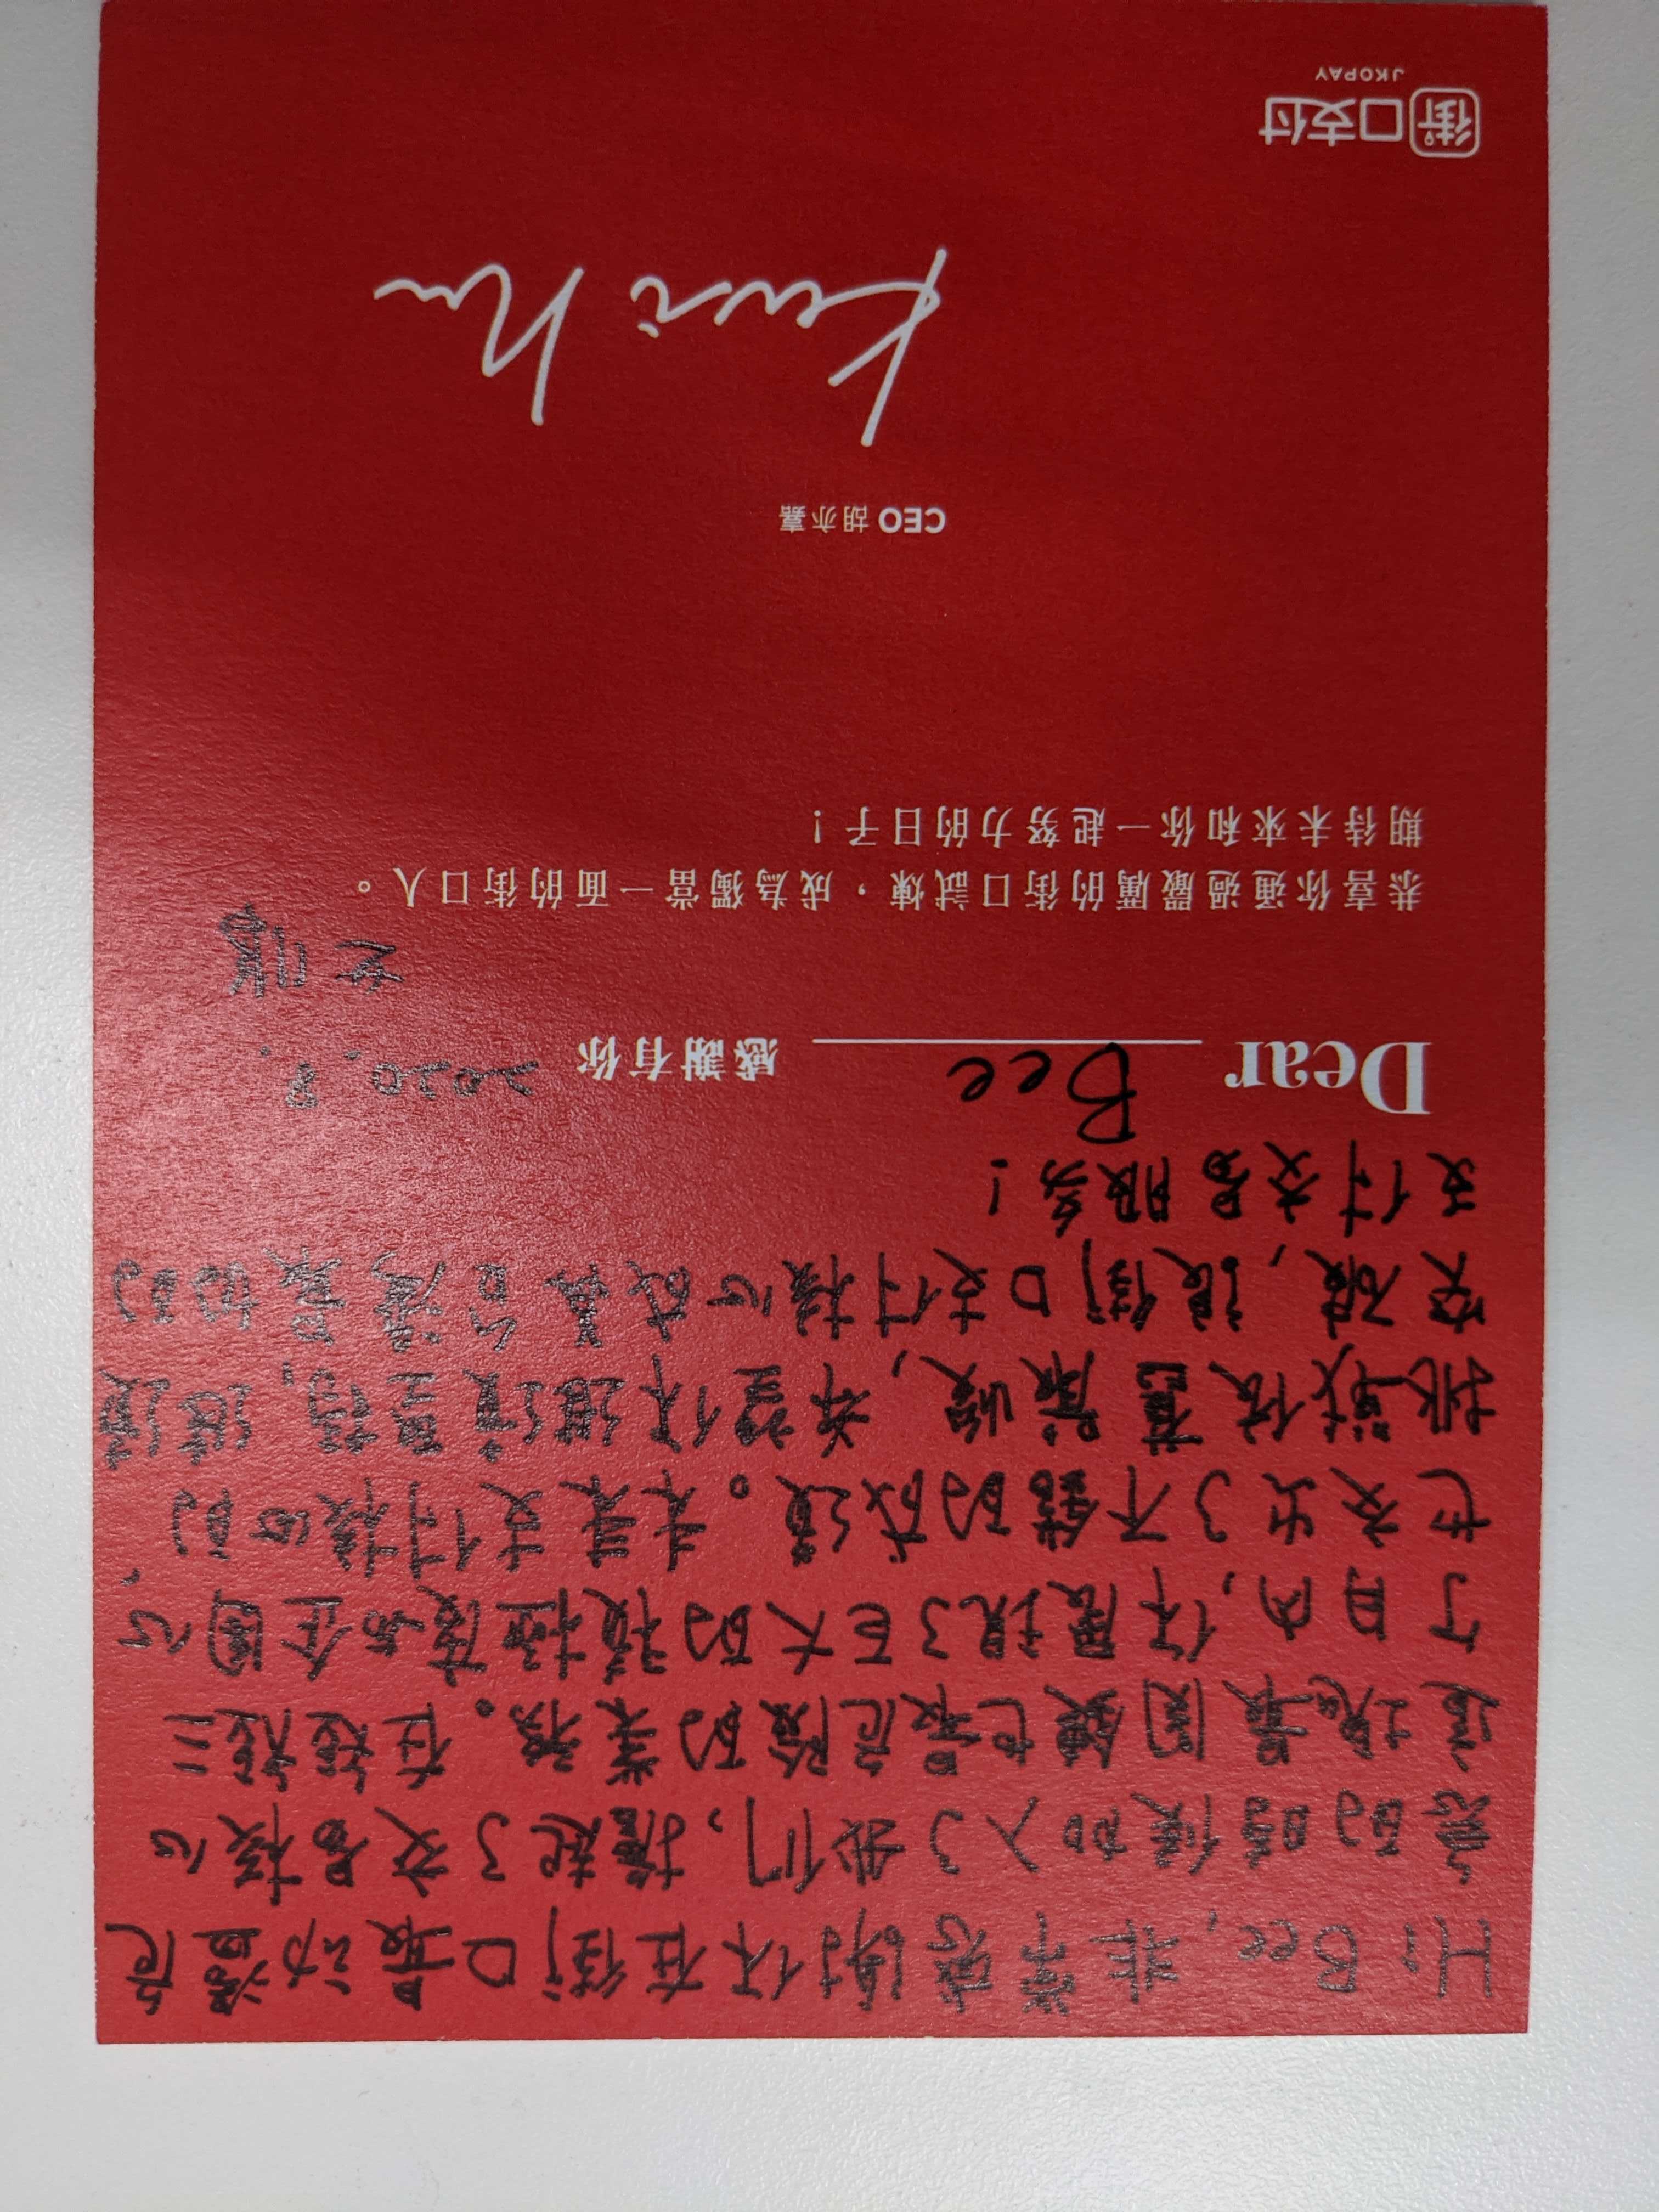 Hi Bee, 非常感謝你在街口最动盪危
急的時候加入了我们, 擔起了交易核心
這塊最関鍵也最危險的業務。在短短三
个月內, 你展現了巨大的積極度与企图心,
也交出了不錯的成績。未来支付核心的
挑戰依舊嚴峻, 希望你继續堅持, 继續
突破, 讓街口支付核心成為台灣最好的
支付交易服务!
Dear Bee 感謝有你 2020.8.
恭喜你通過嚴厲的街口試煉，成為獨當一面的街口人。
期待未來和你一起努力的日子！
CEO 胡亦嘉
Kevin Hu
街口支付
JKOPAY